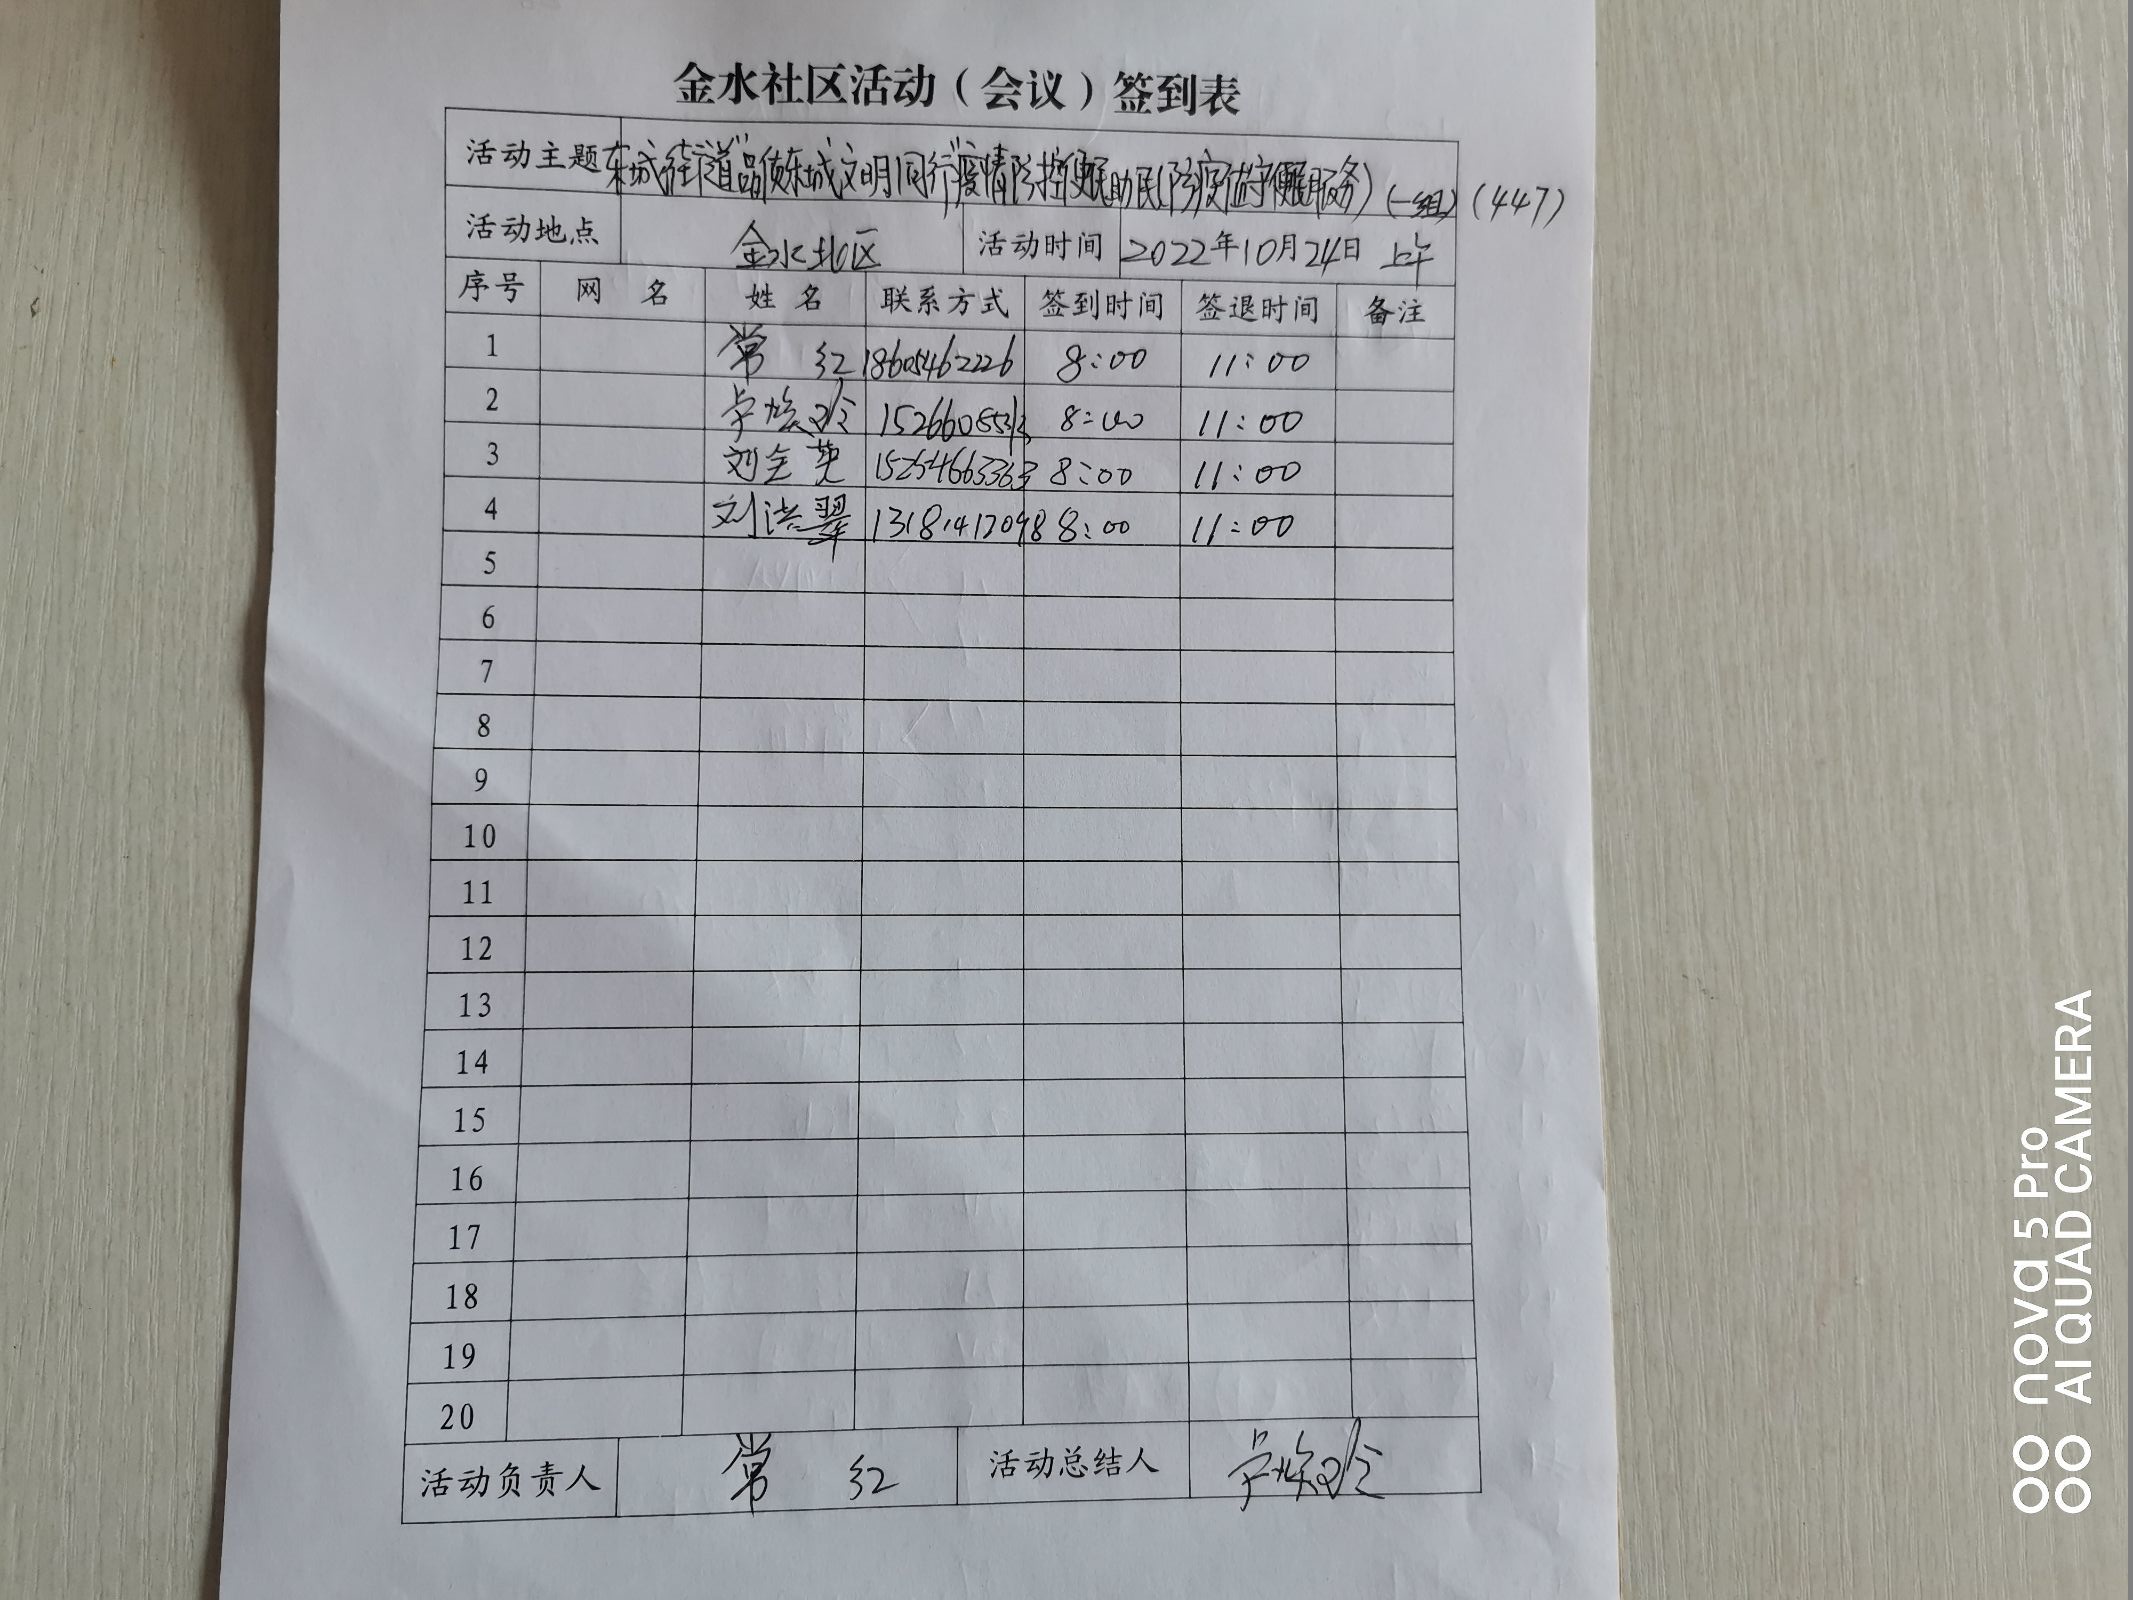 金水社区活动（会议）签到表
活动主题 东城街道"品质东城,文明同行"疫情防控便民助民(防疫值守便民服务)(一组)(447)
活动地点 金水北区 活动时间 2022年10月24日 上午
序号 网 名 姓 名 联系方式 签到时间 签退时间 备注
1 常 红 18605462226 8:00 11:00
2 卢焕玲 8:00 11:00
3 刘全英 15254663363 8:00 11:00
4 刘洪翠 13181417098 8:00 11:00
5
6
7
8
9
10
11
12
13
14
15
16
17
18
19
20
活动负责人 常 红 活动总结人 卢焕玲
nova 5 Pro
AI QUAD CAMERA